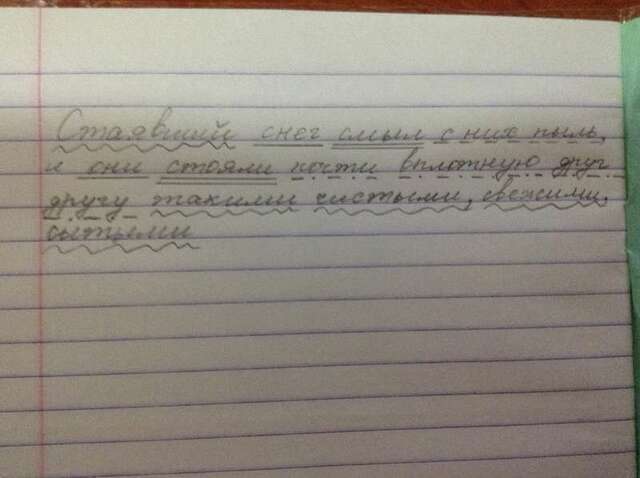 Стаявший снег смыл с них пыль,
и они стояли почти вплотную друг
другу такими чистыми, свежими,
сытыми